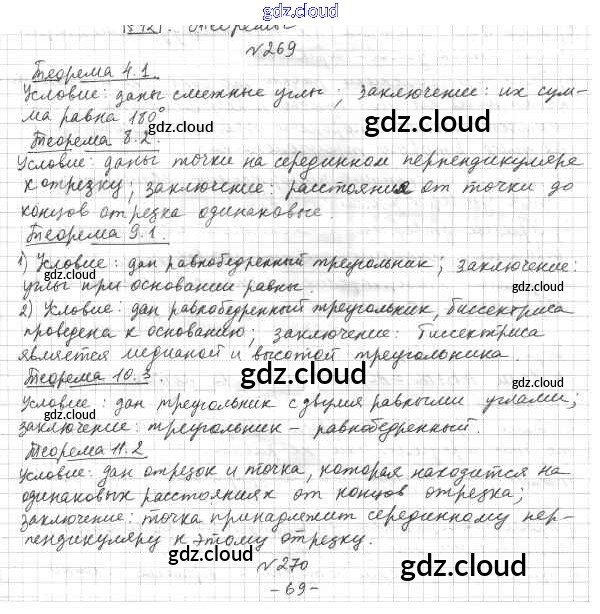 gdz.cloud
§12. Теоремы
№269
Теорема 4.1.
Условие: даны смежные углы; заключение: их сум-
ма равна 180°
gdz.cloud
Теорема 8.2.
Условие: даны точки на серединном перпендикуляре
к отрезку; заключение: расстояния от точки до
концов отрезка одинаковые.
gdz.cloud
gdz.cloud
Теорема 9.1.
1) Условие: дан равнобедренный треугольник; заключение:
углы при основании равны.
2) Условие: дан равнобедренный треугольник, биссектриса
проведена к основанию; заключение: биссектриса
является медианой и высотой треугольника.
Теорема 10.3.
gdz.cloud
gdz.cloud
Условие: дан треугольник с двумя равными углами;
заключение: треугольник – равнобедренный.
Теорема 11.2
Условие: дан отрезок и точка, которая находится на
одинаковых расстояниях от концов отрезка;
заключение: точка принадлежит серединному пер-
пендикуляру к этому отрезку.
gdz.cloud
gdz.cloud
№270
-69-